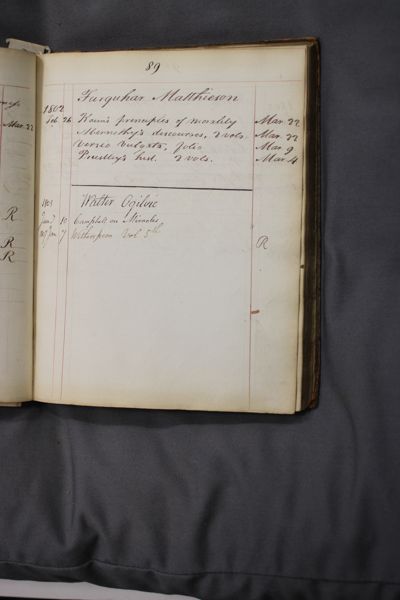 89
Farquhar Matthieson
1802
Feb. 26 Kaim's principles of morality Mar. 22
Abernethy's discourses, 2 vols. Mar. 22
Versio Vulgata, folio Mar. 9
Priestley's hist. 2 vols. Mar. 4
Walter Ogilvie
10 Campbell on Miracles,
7 Witherspoon Vol 5th R
Mar. 22
R
R
R